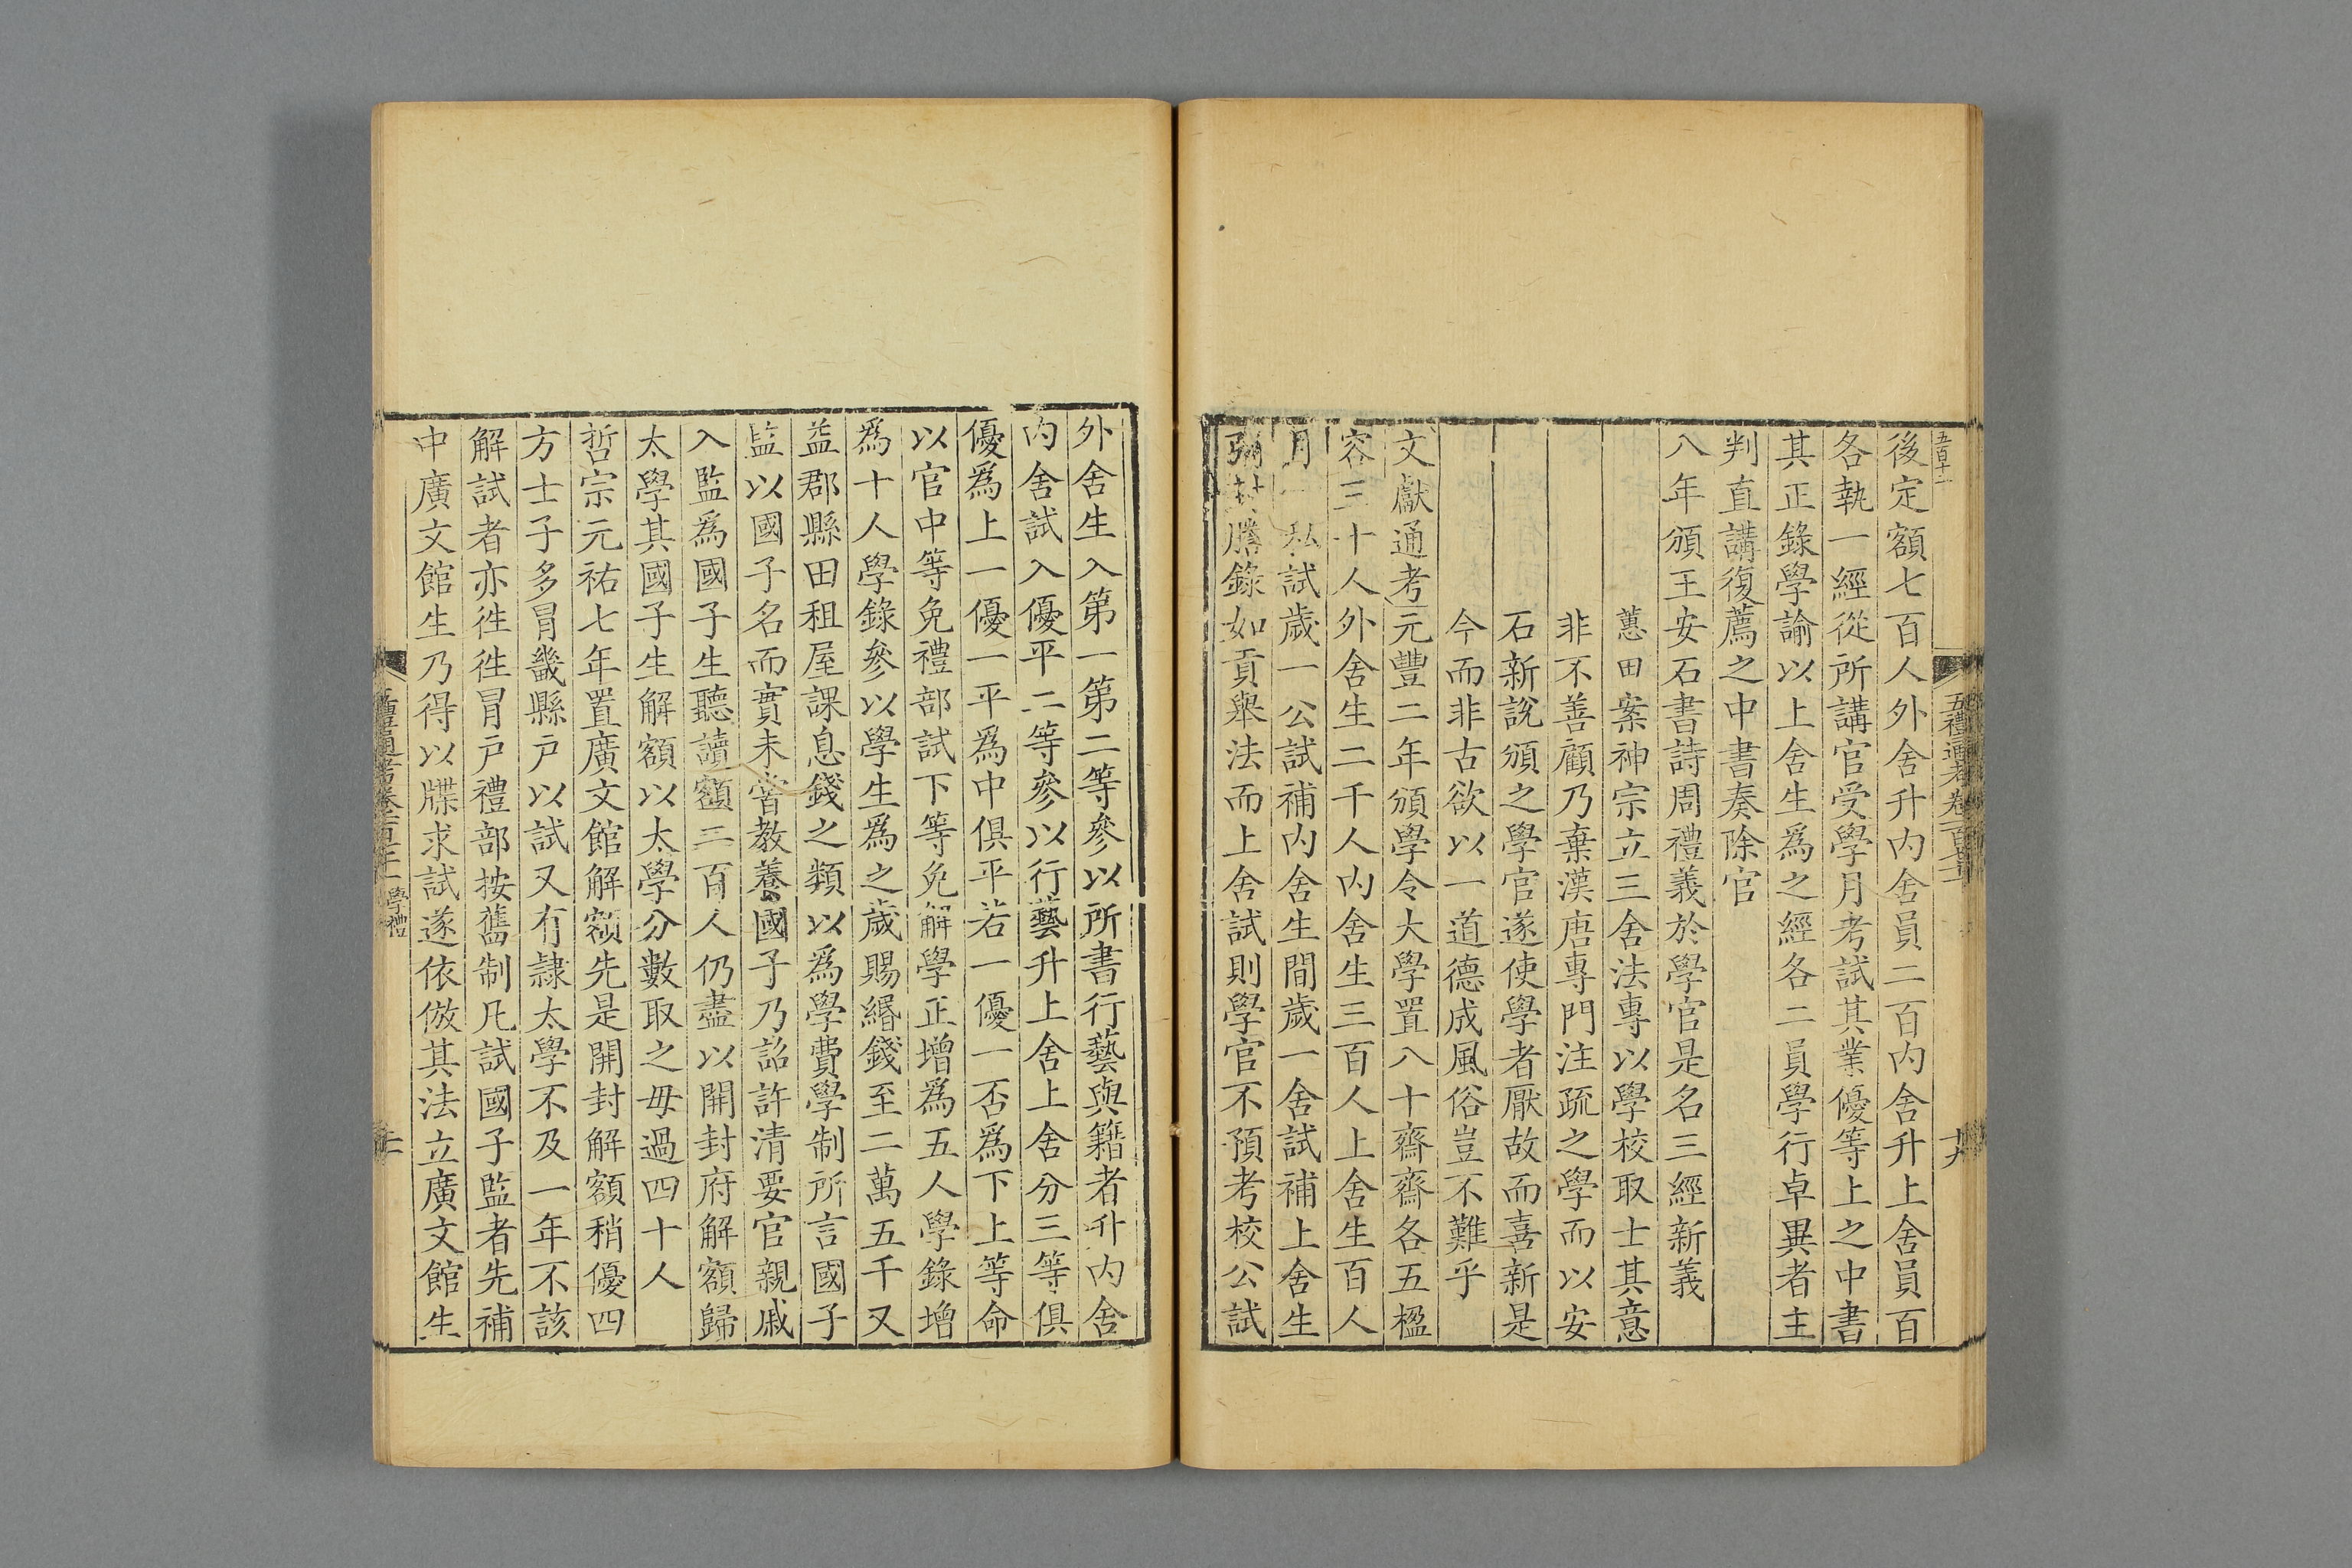 五百十一
五禮通考卷一百七十一
十九
後定額七百人外舍升内舍員二百内舍升上舍員百
各執一經從所講官受學月考試其業優等上之中書
其正錄學諭以上舍生爲之經各二員學行卓異者主
判直講復薦之中書奏除官
八年頒王安石書詩周禮義於學官是名三經新義
蕙田案神宗立三舍法專以學校取士其意
非不善顧乃棄漢唐專門注疏之學而以安
石新說頒之學官遂使學者厭故而喜新是
今而非古欲以一道德成風俗豈不難乎
文獻通考元豐二年頒學令大學置八十齋齋各五楹
容三十人外舍生二千人内舍生三百人上舍生百人
月一私試歲一公試補内舍生間歲一舍試補上舍生
彌封謄錄如貢舉法而上舍試則學官不預考校公試
外舍生入第一第二等參以所書行藝與籍者升内舍
内舍試入優平二等參以行藝升上舍上舍分三等俱
優爲上一優一平爲中俱平若一優一否爲下上等命
以官中等免禮部試下等免解學正增爲五人學錄增
爲十人學錄參以學生爲之歲賜緡錢至二萬五千又
益郡縣田租屋課息錢之類以爲學費學制所言國子
監以國子名而實未嘗教養國子乃詔許清要官親戚
入監爲國子生聽讀額二百人仍盡以開封府解額歸
太學其國子生解額以太學分數取之毋過四十人
哲宗元祐七年置廣文館解額先是開封解額稍優四
方士子多冒畿縣戸以試又有隷太學不及一年不該
解試者亦徃徃冒戸禮部按舊制凡試國子監者先補
中廣文館生乃得以牒求試遂依倣其法立廣文館生
學禮